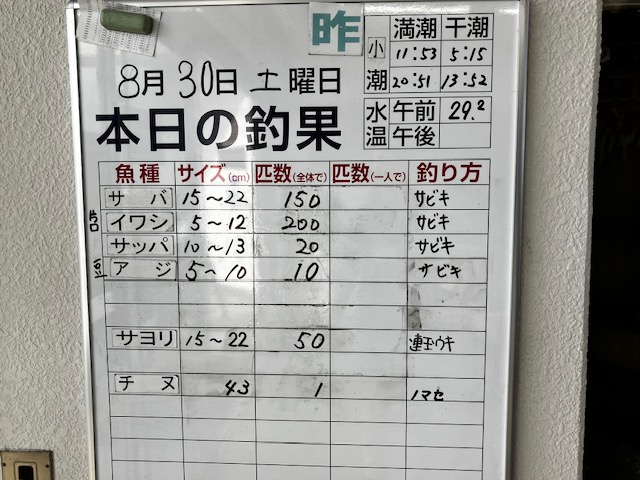 昨
8月30日土曜日
本日の釣果
小潮 満潮 干潮
11:53 5:15
20:51 13:52
水温 午前 29.2
午後
魚種 サイズ(cm) 匹数(全体で) 匹数(一人で) 釣り方
サバ 15~22 150 サビキ
片口 イワシ 5~12 200 サビキ
サッパ 10~13 20 サビキ
豆 アジ 5~10 10 サビキ
サヨリ 15~22 50 連玉ウキ
チヌ 43 1 ノマセ